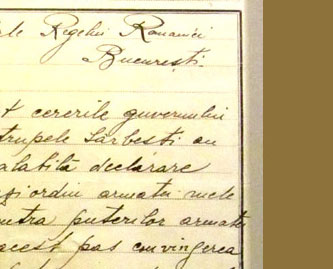 Regelui Romaniei
Bucuresti.
cererile guvernului
trupele Sârbesti au
declarare
ordin armatei mele
puterilor armate
acest pas convingerea